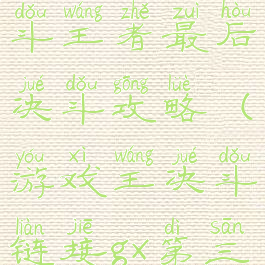 dǒu wáng zhě zuì hòu
斗王者最后
jué dǒu gōng luè
决斗攻略（
yóu xì wáng jué dǒu
游戏王决斗
liàn jiē dì sān
链接gx第三